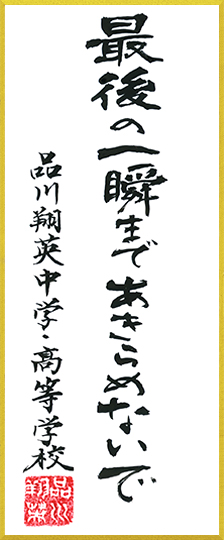 最後の一瞬まであきらめないで
品川翔英中学・高等学校
品川
翔英